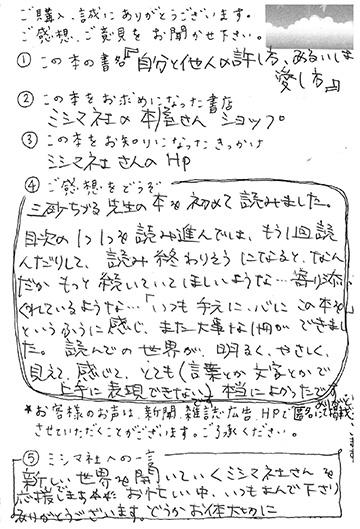 ご購入、誠にありがとうございます。
ご感想、ご意見をお聞かせ下さい。
① この本の書名『自分と他人の許し方、あるいは
愛し方』
② この本をお求めになった書店
ミシマ社の本屋さんショップ
③ この本をお知りになったきっかけ
ミシマ社さんのHP
④ ご感想をどうぞ
三砂ちづる先生の本を初めて読みました。
目次の1つ1つを読み進んでは、もう1回読
んだりして、読み終わりそうになると、なん
だかもっと続いていてほしいような…寄り添
くれているような…「いつも手元に、心にこの本を」
というふうに感じ、また大事な1冊ができまし
た。読んでの世界が、明るく、やさしく、
見えて、感じて、とても(言葉とか文字とかで
上手に表現できない)本当によかったです
*お客様のお声は、新聞、雑誌・広告、HPで匿名にて掲載
させていただくことがございます。ご了承ください。
⑤ ミシマ社への一言
新しい世界を開いていくミシマ社さんを
応援してます お忙しい中、いつも
ありがとうございます。どうかお体大切に